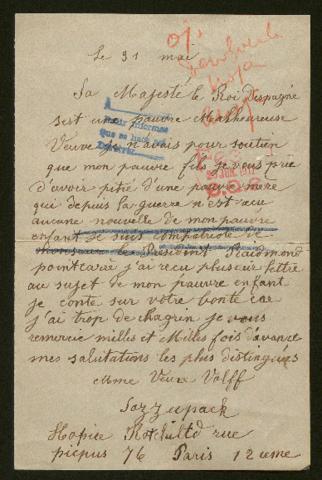 Le 31 mai
Sa Majesté le Roi Despagne
sest une pauvre Malheureuse
Veuve je n'avais pour soutien
que mon pauvre fils je vous prie
d'avoir pitié d'une pauvre mère
qui depuis la guerre n'est reçu
aucune nouvelle de mon pauvre
enfant Je suis compatriote de
monsieur le Président Raidmond
pointcarré j'ai recu plusieur lettre
au sujet de mon pauvre enfant
je conte sur votre bonté car
j'ai trop de chagrin je vous
remercie milles et Milles fois d'avance
mes salutations les plus distinguées
Mme Veuve Volff
Sozzupack
Hopice Rothultd rue
picpus 76 Paris 12 eme
Que se hace